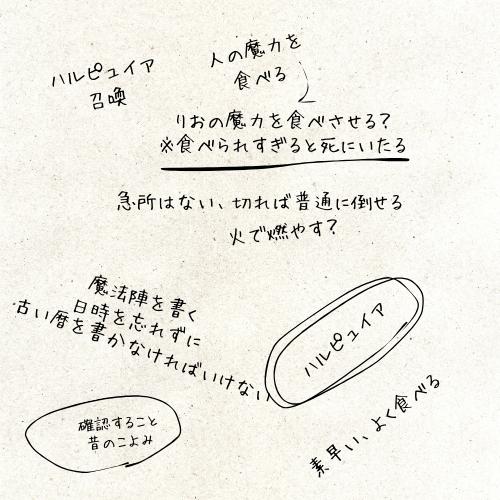 ハルピュイア
召喚
人の魔力を
食べる
りおの魔力を食べさせる?
※食べられすぎると死にいたる
急所はない、切れば普通に倒せる
火で燃やす?
魔法陣を書く
日時を忘れずに
古い暦を書かなければいけない
ハルピュイア
確認すること
昔のこよみ
素早い、よく食べる